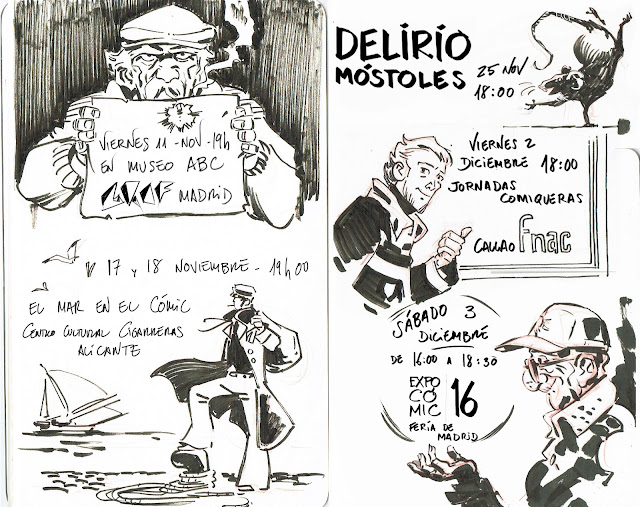 VIERNES 11 - NOV - 19h
EN MUSEO ABC
MADRID
17 y 18 NOVIEMBRE - 19h00
EL MAR EN EL CÓMIC
CENTRO CULTURAL CIGARRERAS
ALICANTE
DELIRIO
MÓSTOLES
25 NOV
18:00
VIERNES 2
DICIEMBRE 18:00
JORNADAS
COMIQUERAS
CALLAO fnac
SÁBADO 3
DICIEMBRE
DE 16:00 A 18:30
EXPO
CÓ
MIC 16
FERIA DE
MADRID